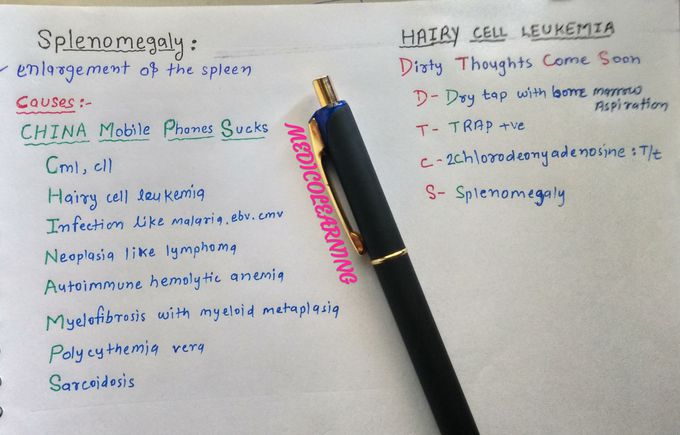 Splenomegaly:
enlargement of the spleen
Causes:-
CHINA Mobile Phones Sucks
Cml, cll
Hairy cell leukemia
Infection like malaria, ebv. cmv
Neoplasia like lymphoma
Autoimmune hemolytic anemia
Myelofibrosis with myeloid metaplasia
Polycythemia vera
Sarcoidosis
MEDICOLEARNING
HAIRY CELL LEUKEMIA
Dirty Thoughts Come Soon
D- Dry tap with bone marrow
Aspiration
T- TRAP +ve
C- 2chlorodeonyadenosine: T/t
S- Splenomegaly